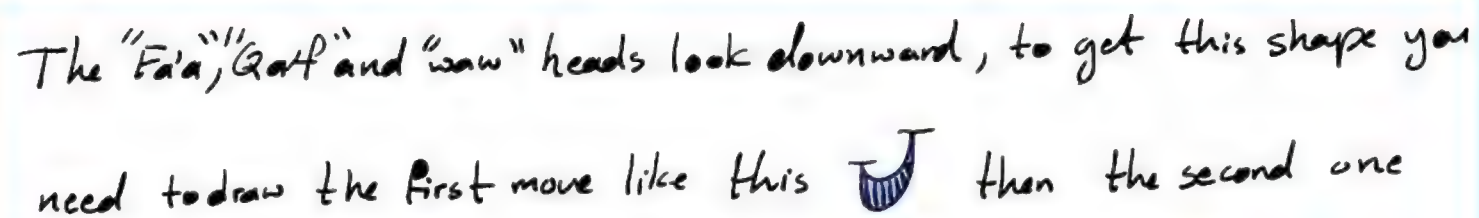 The "Fa'a", "Qaf" and "waw" heads look downward, to get this shape you
need to draw the first move like this then the second one